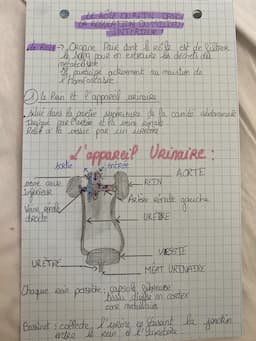 LE RÔLE DU REIN DANS
LA RÉGULATION DU MILIEU
INTÉRIEUR
Le Rein → Organe Pair dont le rôle est de filtrer
le sang pour en extraire les déchets du
métabolisme
Il participe activement au maintien de
l'homéostasie
1) le Rein et l'appareil urinaire
située dans la partie supérieure de la cavité abdominale
par l'aorte et la veine rénale
Relié à la vessie par un uretère
L'appareil Urinaire :
sortie entrée
AORTE
veine cave
inférieure
REIN
Veine rénale
droite
Artère rénale gauche
URETÈRE
URÈTRE
VESSIE
MÉAT URINAIRE
Chaque rein possède : capsule fibreuse
divisé en cortex
médullaire
Bassinet : collecte l'urine et formant la jonction
entre le rein et l'uretère